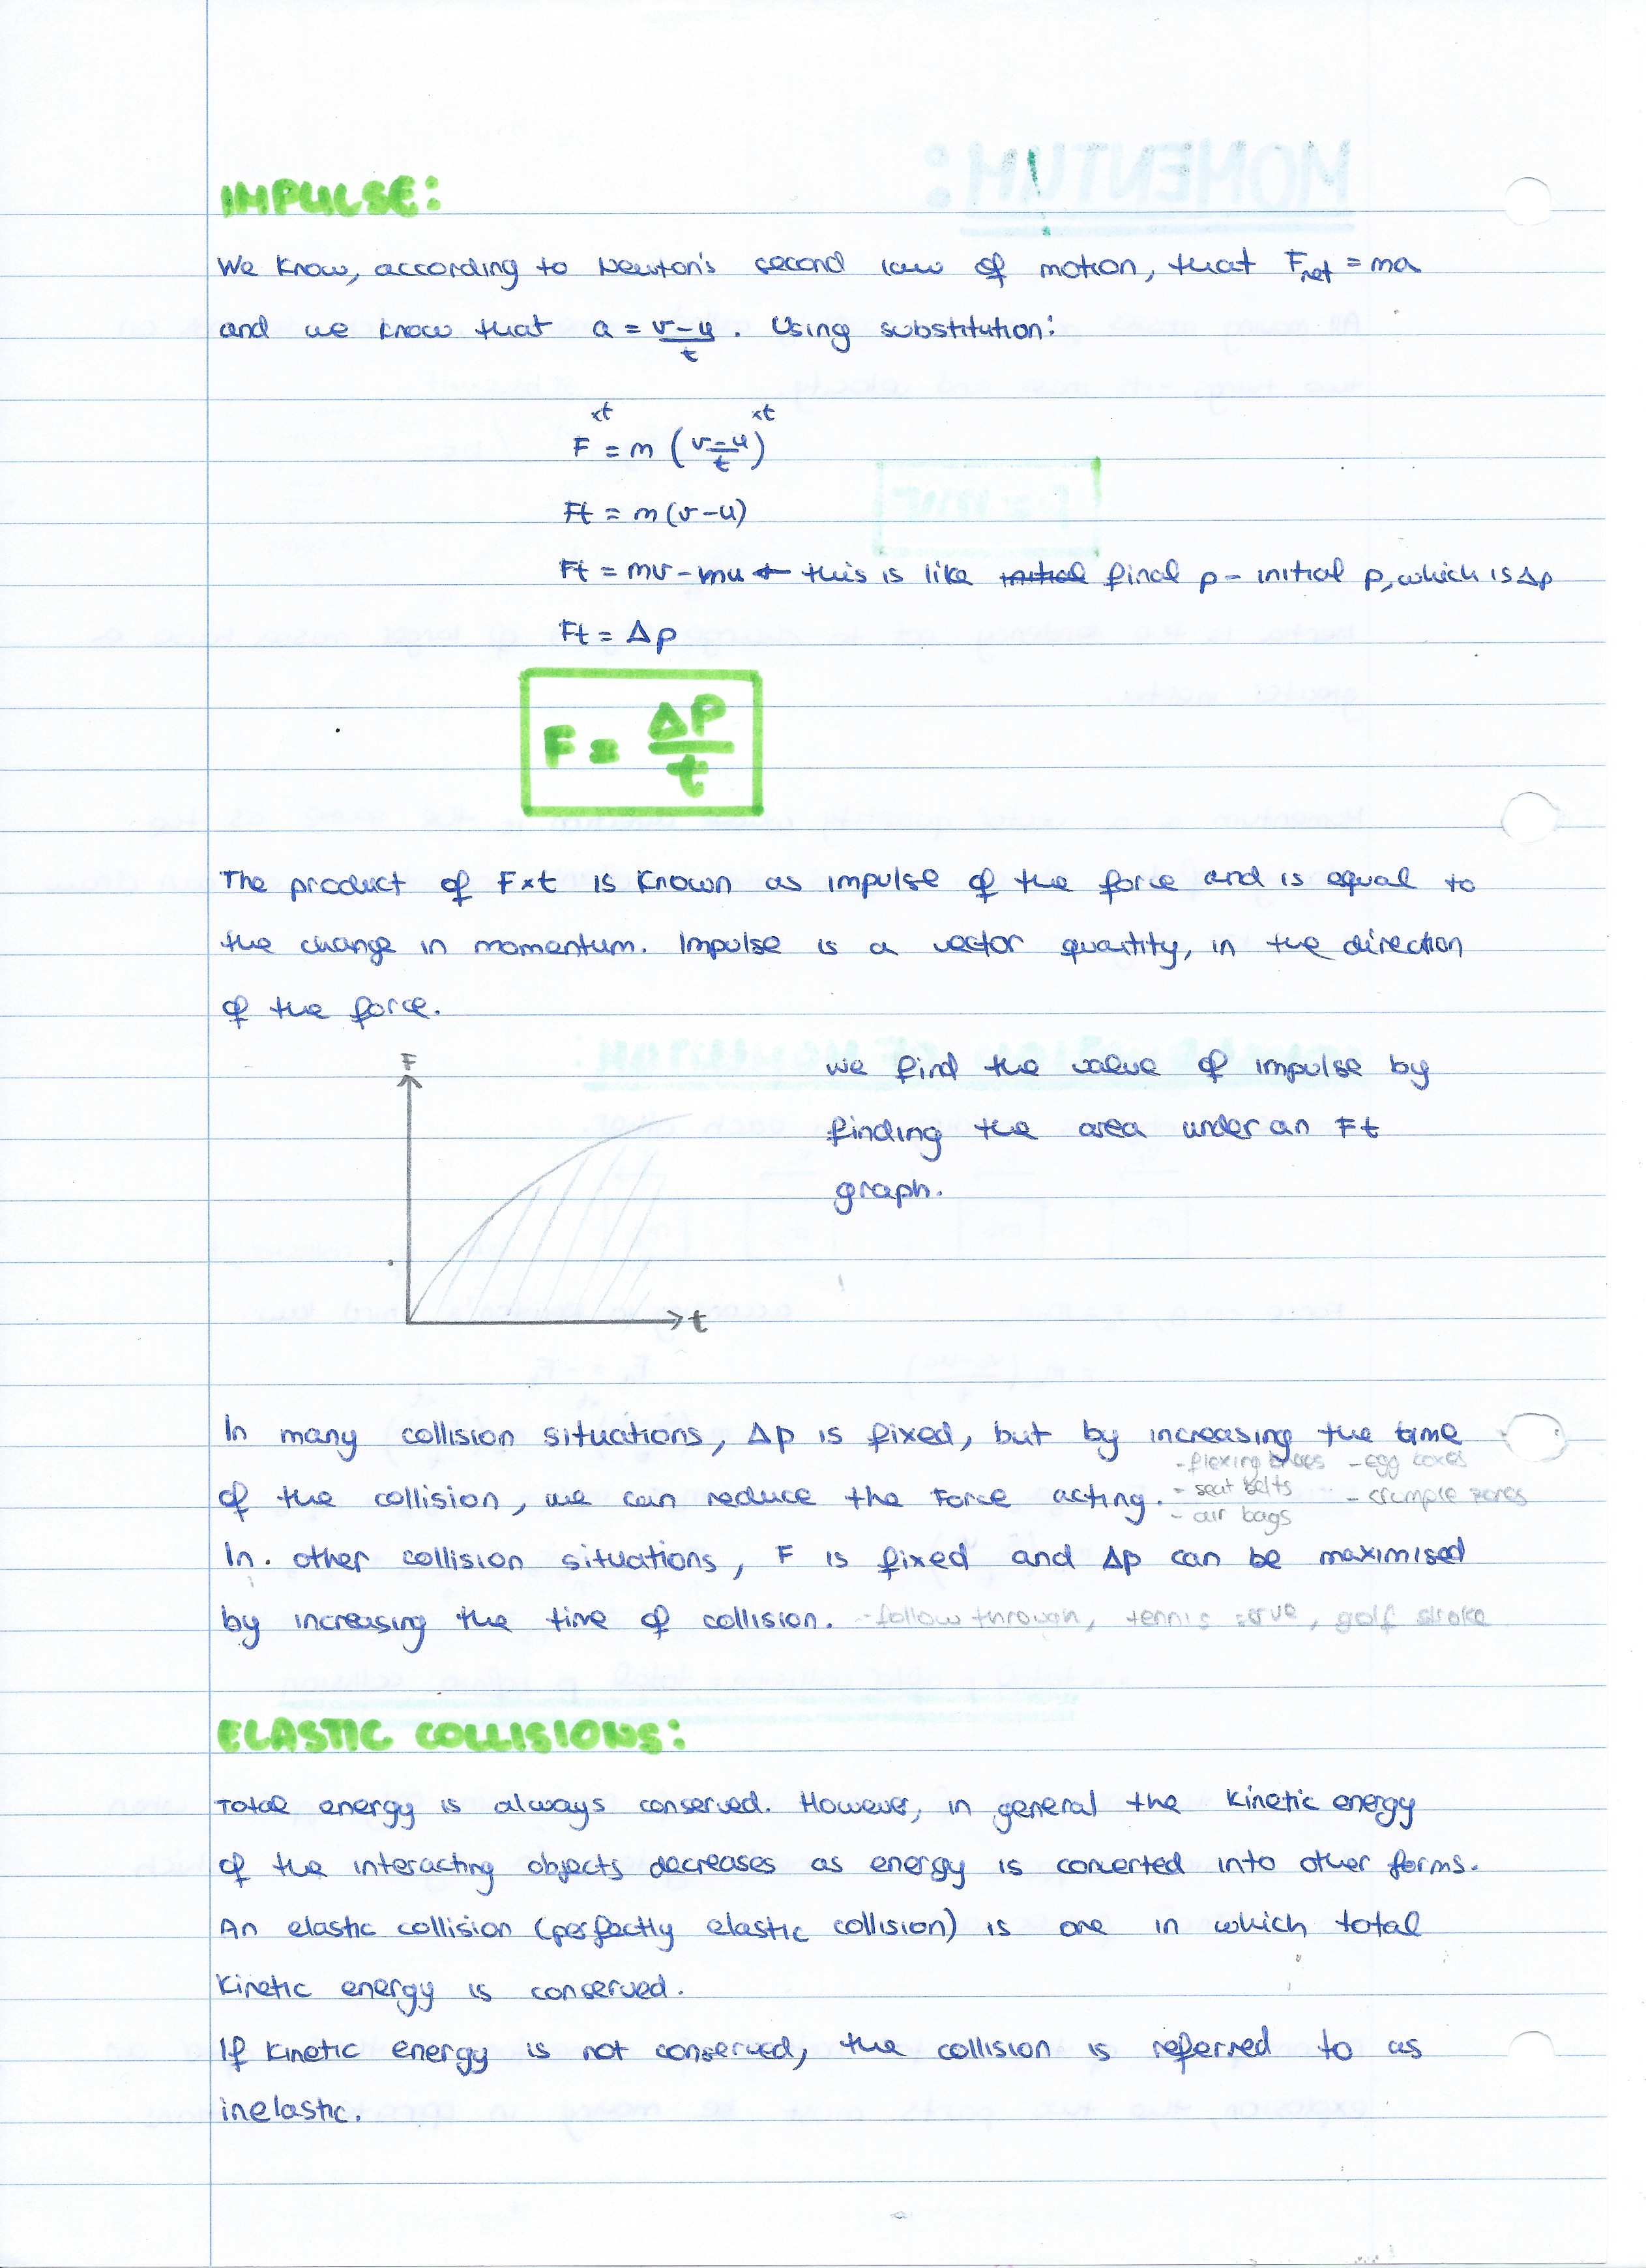 IMPULSE:
We know, according to Newton's second law of motion, that Fnet = ma
and we know that a = v-u/t. Using substitution:
xt xt
F = m (v-u/t)
Ft = m(v-u)
Ft = mv - mu ← this is like initial final p - initial p, which is Δp
Ft = Δp
F = ΔP/t
The product of F×t is known as impulse of the force and is equal to
the change in momentum. Impulse is a vector quantity, in the direction
of the force.
F
t
we find the value of impulse by
finding the area under an Ft
graph.
In many collision situations, Δp is fixed, but by increasing the time
of the collision, we can reduce the Force acting.
- flexing knees - egg boxes
- seat belts - crumple zones
- air bags
In other collision situations, F is fixed and Δp can be maximised
by increasing the time of collision. - follow through, tennis serve, golf stroke
ELASTIC COLLISIONS:
Total energy is always conserved. However, in general the kinetic energy
of the interacting objects decreases as energy is converted into other forms.
An elastic collision (perfectly elastic collision) is one in which total
kinetic energy is conserved.
If kinetic energy is not conserved, the collision is referred to as
inelastic.